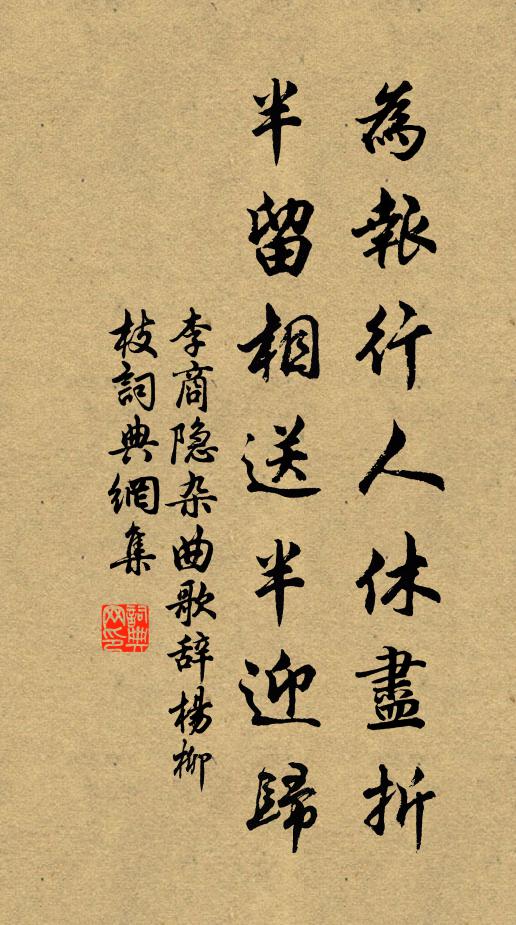 為報行人休盡折
半留相送半迎歸
李商隐杂曲歌辞楊柳
枝詞典網集
詞典網印